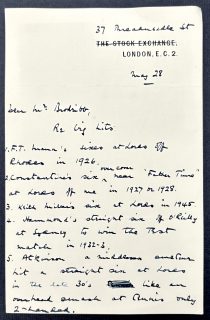 37 Threadneedle St
THE STOCK EXCHANGE,
LONDON, E.C.2.
May 28
Dear Mr Brodribb,
Re big hits
1. F.T. Mann's sixes at Lords off
Rhodes in 1926.
2. Constantine's six, over cover near "Father Time"
at Lords off me in 1927 or 1928.
3. Keith Miller's six at Lords in 1945
4. Hammond's straight six off O'Reilly
at Sydney, to win the Test
match in 1932-3,
5. Atkinson a middlesex amateur
hit a straight six at Lords
in the late 30's like an
overhead smash at tennis only
2-handed.